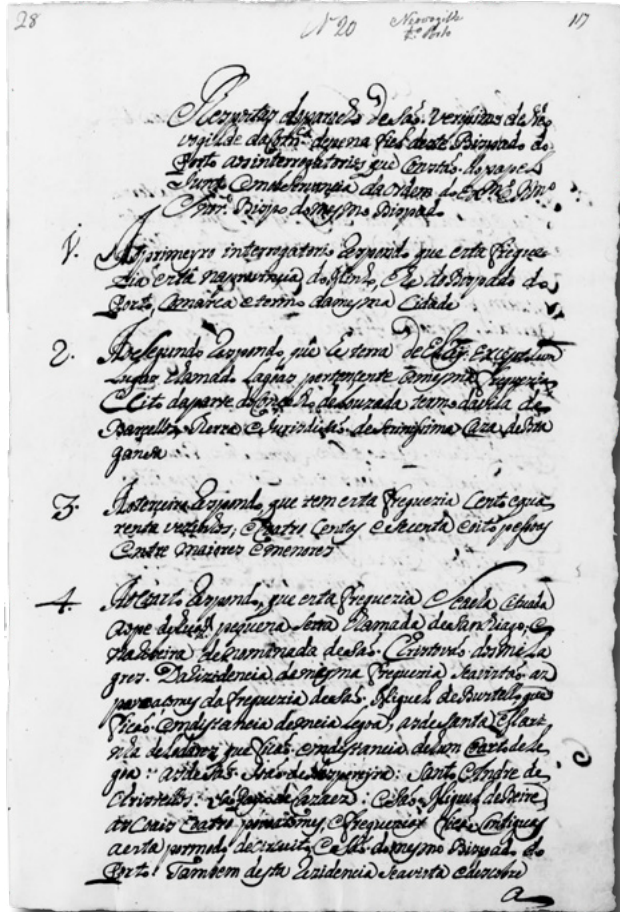 28
Nº 20
117
de São Verissimo de Ne
vogilde da de penafiel deste Bispado do
Porto aos interrogatorios que Constão do papel
Junto Com observancia da Ordem do Exmº Rmº
Snrº Bispo do mesmo Bispado
1. Ao primeyro interrogatorio Respondo que esta Fregue
zia está na provincia do Minho, e he do Bispado do
Porto, Comarca e termo da mesma Cidade
2. Ao Segundo Respondo, que he terra de El Rey. Excepto hum
Lugar Chamado Lagoas pertencente a mesma Freguezia
Cito da parte do Concelho de Louzada termo da vila de
Barcellos, terra e Jurisdição da Serinissima Caza de Bra
gança
3. Ao terceiro Respondo, que tem esta Freguezia Cento e qua
renta vezinhos; e quatro Centas e Secenta e oito pessoas
Entre Maiores e menores
4. Ao Coarto Respondo, que esta Freguezia Se acha Cituada
ao pe de huã pequena Serra Chamada de San Tiago, e
na Ribeira denuminada de São Christovão dos mila
gres. Da Rezidencia da mesma Freguezia Se avistão as
da freguezia de São Miguel de Bustello que
ficão Em distancia de meia legoa; a de Santa Mari
nha de Lodares que fica Em distancia de hum Coarto de le
goa: a de São João de Nespereyra: Santo Andre de
Christellos: São Payo de Cazaes: e São Miguel de Beire
as Coais Coatro e Freguezias
a esta por modo de circuito, e São do mesmo Bispado do
Porto. Tambem desta Rezidencia Se avista e descobre
a